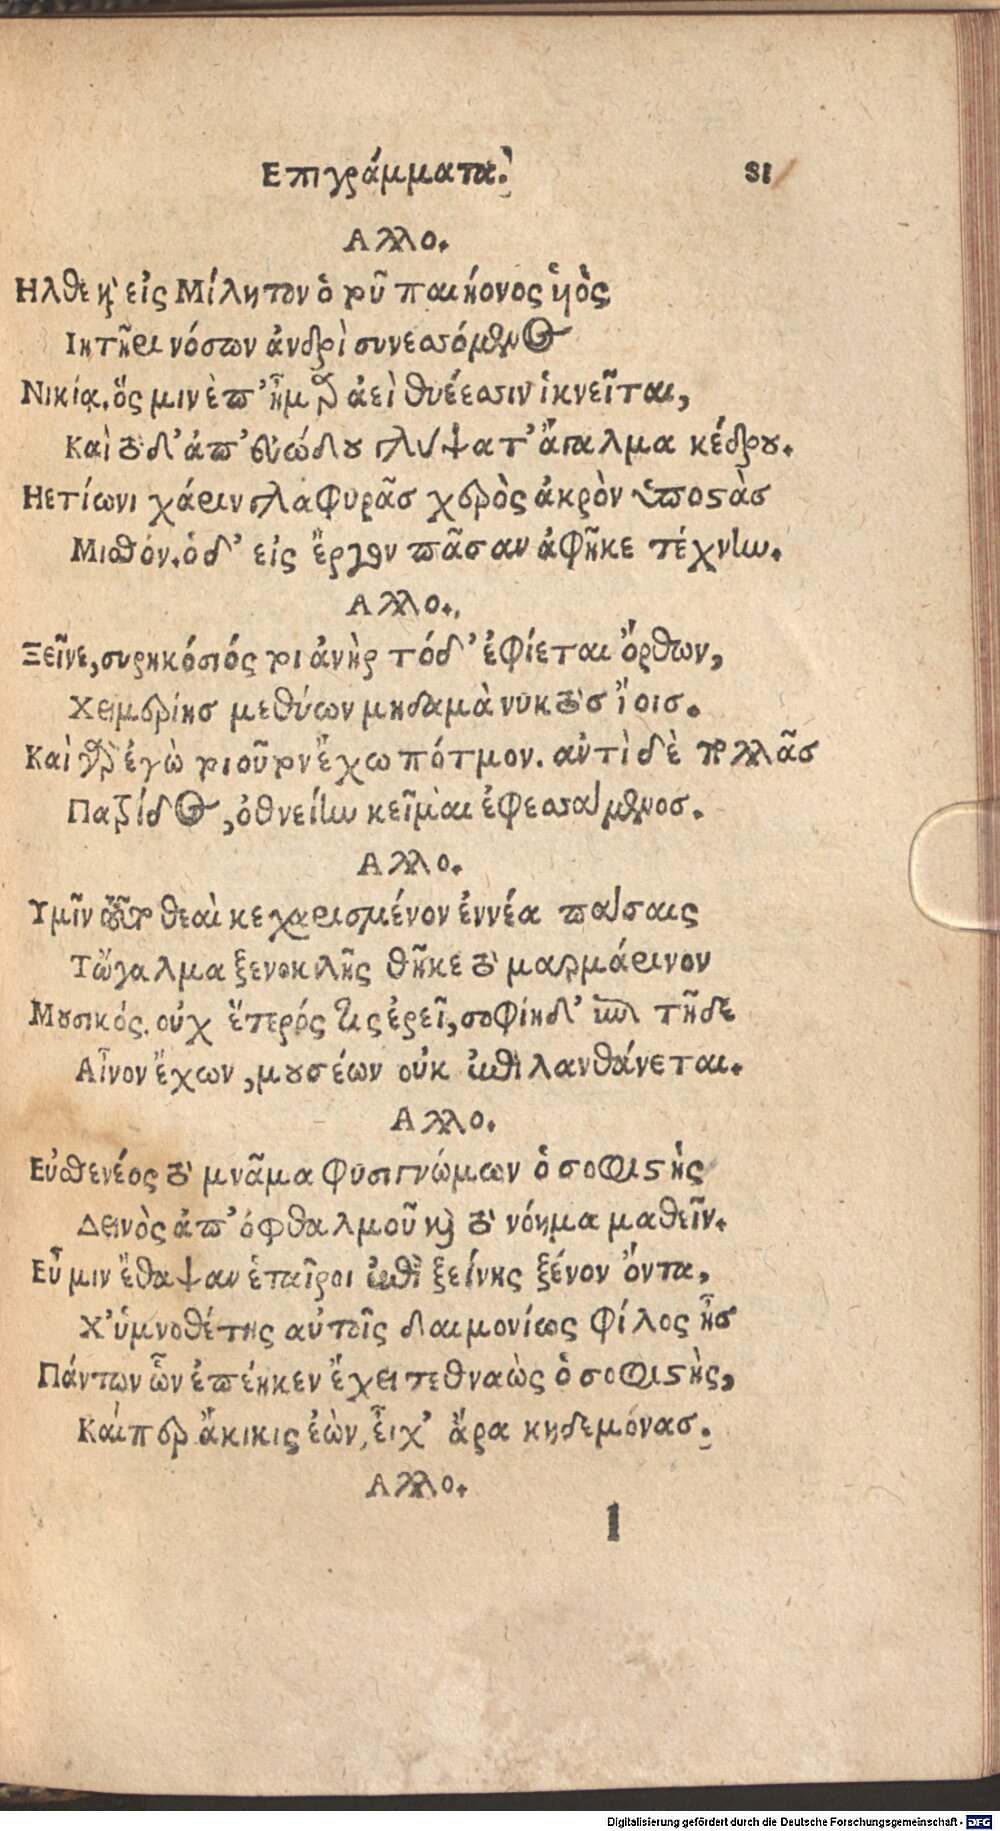 Επιγράμματα. 81
Αλλο.
Ηλθε κ' εἰς Μίλητον ὁ τοῦ παιήονος ὑὸς
Ιητῆρι νόσων ἀνδρὶ συνεσσόμενος
Νικίᾳ. ὅς μιν ἐπ' ἦμαρ ἀεὶ θυέεσσιν ἱκνεῖται,
Καὶ τόδ' ἀπ' εὐώδου γλύψατ' ἄγαλμα κέδρου.
Ηετίωνι χάριν γλαφυρᾶσ χερὸς ἀκρὸν ὑποστὰσ
Μισθόν. ὁ δ' εἰς ἔργον πᾶσαν ἀφῆκε τέχνην.
Αλλο.
Ξεῖνε, συρηκόσιός τοι ἀνὴρ τόδ' ἐφίεται Ὄρθων,
Χειμερίησ μεθύων μηδαμὰ νυκτὸσ ἴοισ.
Καὶ γὰρ ἐγὼ τοιοῦτον ἔχω πότμον. αὐτὶ δὲ πολλᾶσ
Πατρίδος, ὀθνείην κεῖμαι ἐφεσσαμενοσ.
Αλλο.
Υμῖν τοῦτο θεαὶ κεχαρισμένον ἐννέα πάσαις
Τὤγαλμα ξενοκλῆς θῆκε τὸ μαρμάρινον
Μουσικός. οὐχ ἕτερός τις ἐρεῖ, σοφίηδ' ἐπὶ τῇδε
Αἶνον ἔχων, μουσέων οὐκ ἐπιλανθάνεται.
Αλλο.
Εὐσθενέος τὸ μνᾶμα φυσιγνώμων ὁ σοφιστὴς
Δεινὸς ἀπ' ὀφθαλμοῦ καὶ τὸ νόημα μαθεῖν.
Εὖ μιν ἔθαψαν ἑταῖροι ἐπὶ ξείνης ξένον ὄντα,
Χ' ὑμνοθέτης αὐτοῖς δαιμονίως φίλος ἦσ
Πάντων ὧν ἐπέηκεν ἔχει τεθναὼς ὁ σοφιστὴς,
Καίπερ ἄκικις ἐὼν, εἶχ' ἄρα κηδεμόνασ.
Αλλο.
l
Digitalisierung gefördert durch die Deutsche Forschungsgemeinschaft - DFG